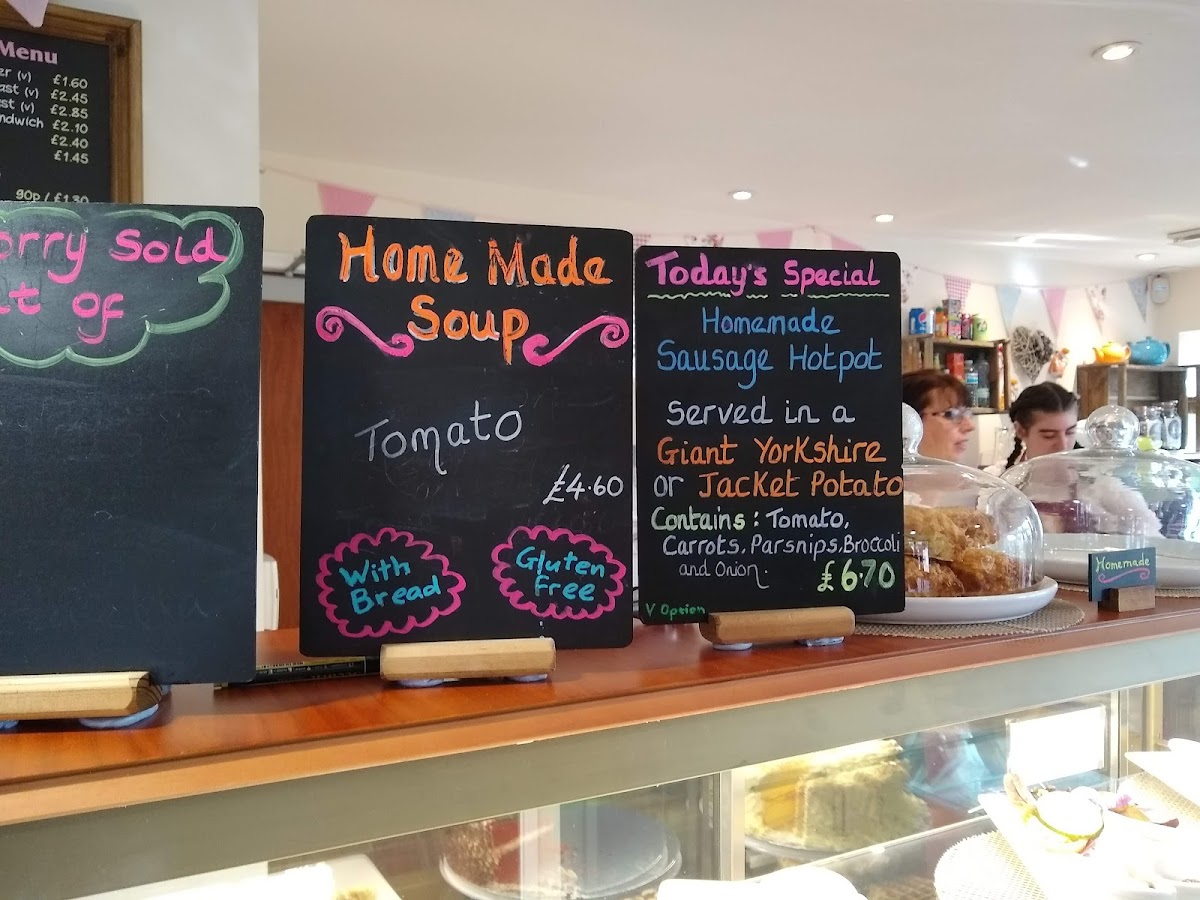 Menu
(v) £1.60
(v) £2.45
(v) £2.85
£2.10
£2.40
£1.45
90p / £1.30
Sold
of
Home Made
Soup
Tomato
£4.60
With
Bread
Gluten
Free
Today's Special
Homemade
Sausage Hotpot
Served in a
Giant Yorkshire
or Jacket Potato
Contains: Tomato,
Carrots, Parsnips, Broccoli
and Onion.
£6.70
V Option
Homemade